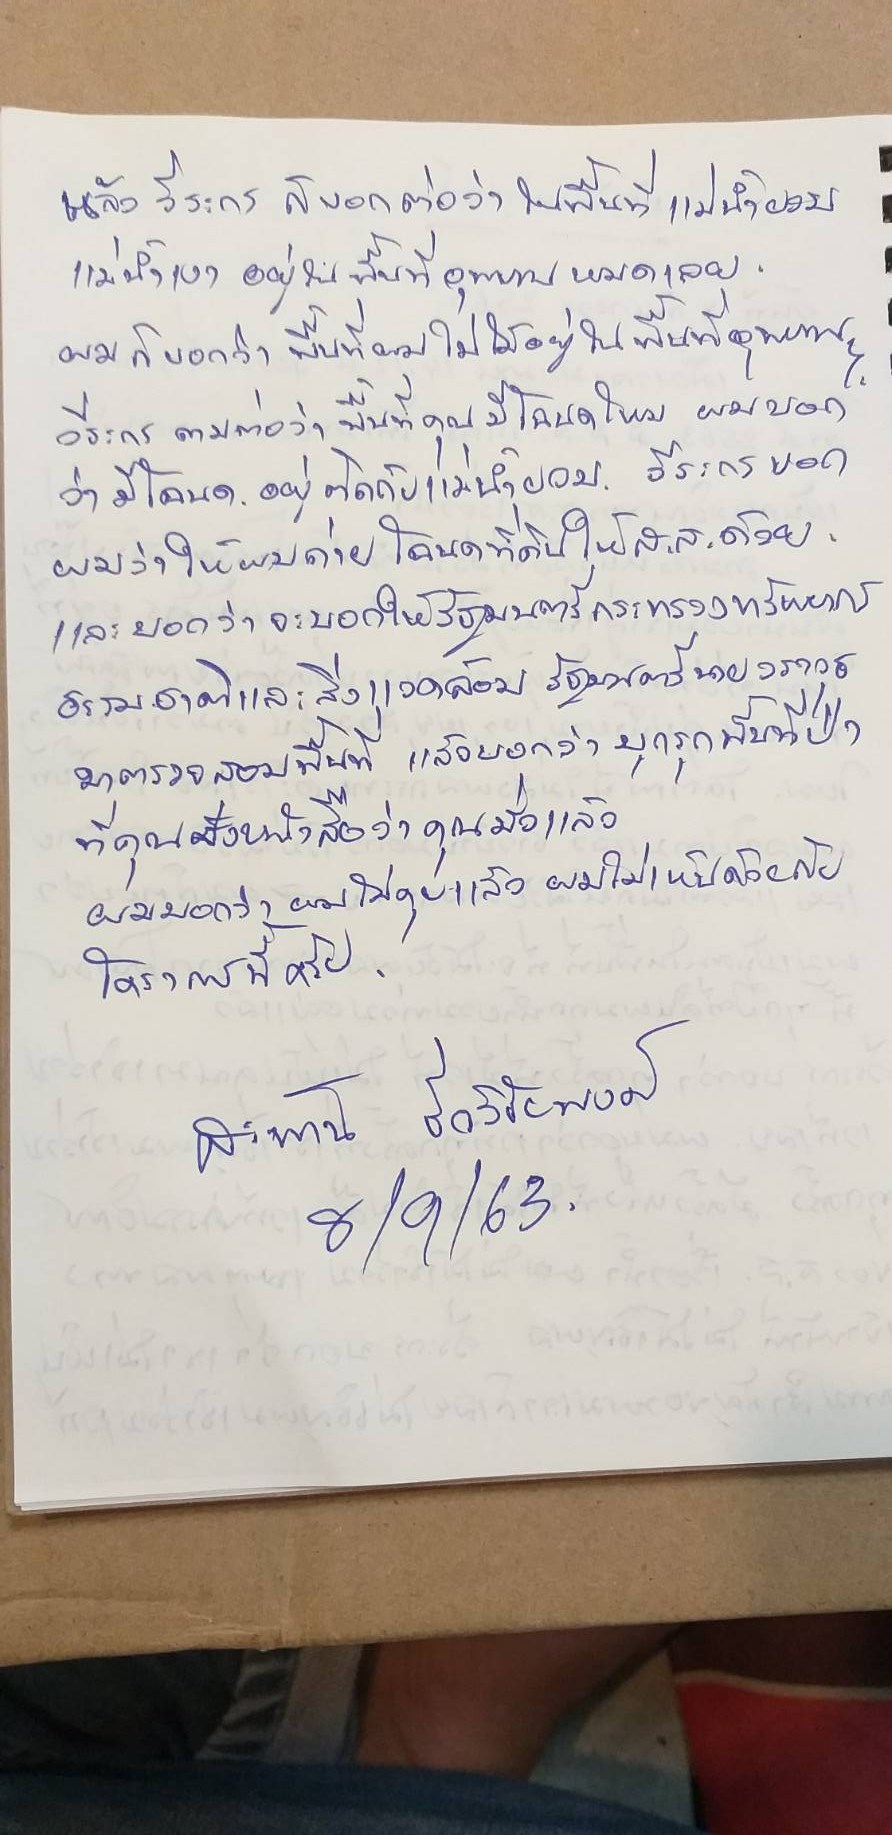 แล้ว วีระกร ก็บอกต่อว่า ในพื้นที่ แม่น้ำยวม
แม่น้ำเงา อยู่ใน พื้นที่อุทยาน หมดเลย.
ผม ก็บอกว่า พื้นที่ผม ไม่ได้อยู่ใน พื้นที่อุทยาน
วีระกร ถามต่อว่า พื้นที่คุณ มีโฉนดไหม ผมบอก
ว่า มีโฉนด. อยู่ติดกับแม่น้ำยวม. วีระกร บอก
ผมว่า ให้ผมถ่าย โฉนดที่ดิน ให้ ส.ส. ด้วย.
และ บอกว่า จะบอกให้รัฐมนตรีกระทรวงทรัพยากร
ธรรมชาติและสิ่งแวดล้อม รัฐมนตรี นายวราวุธ
มาตรวจสอบพื้นที่ แล้วบอกว่า บุกรุกพื้นที่ป่า
ที่คุณ หนังสือว่า คุณมั่วแล้ว
ผมบอกว่า ผมไม่คุยแล้ว ผมไม่เห็นด้วยกับ
โครงการนี้ครับ.
สะท้าน ชีววิชัยพงศ์
8/9/63.